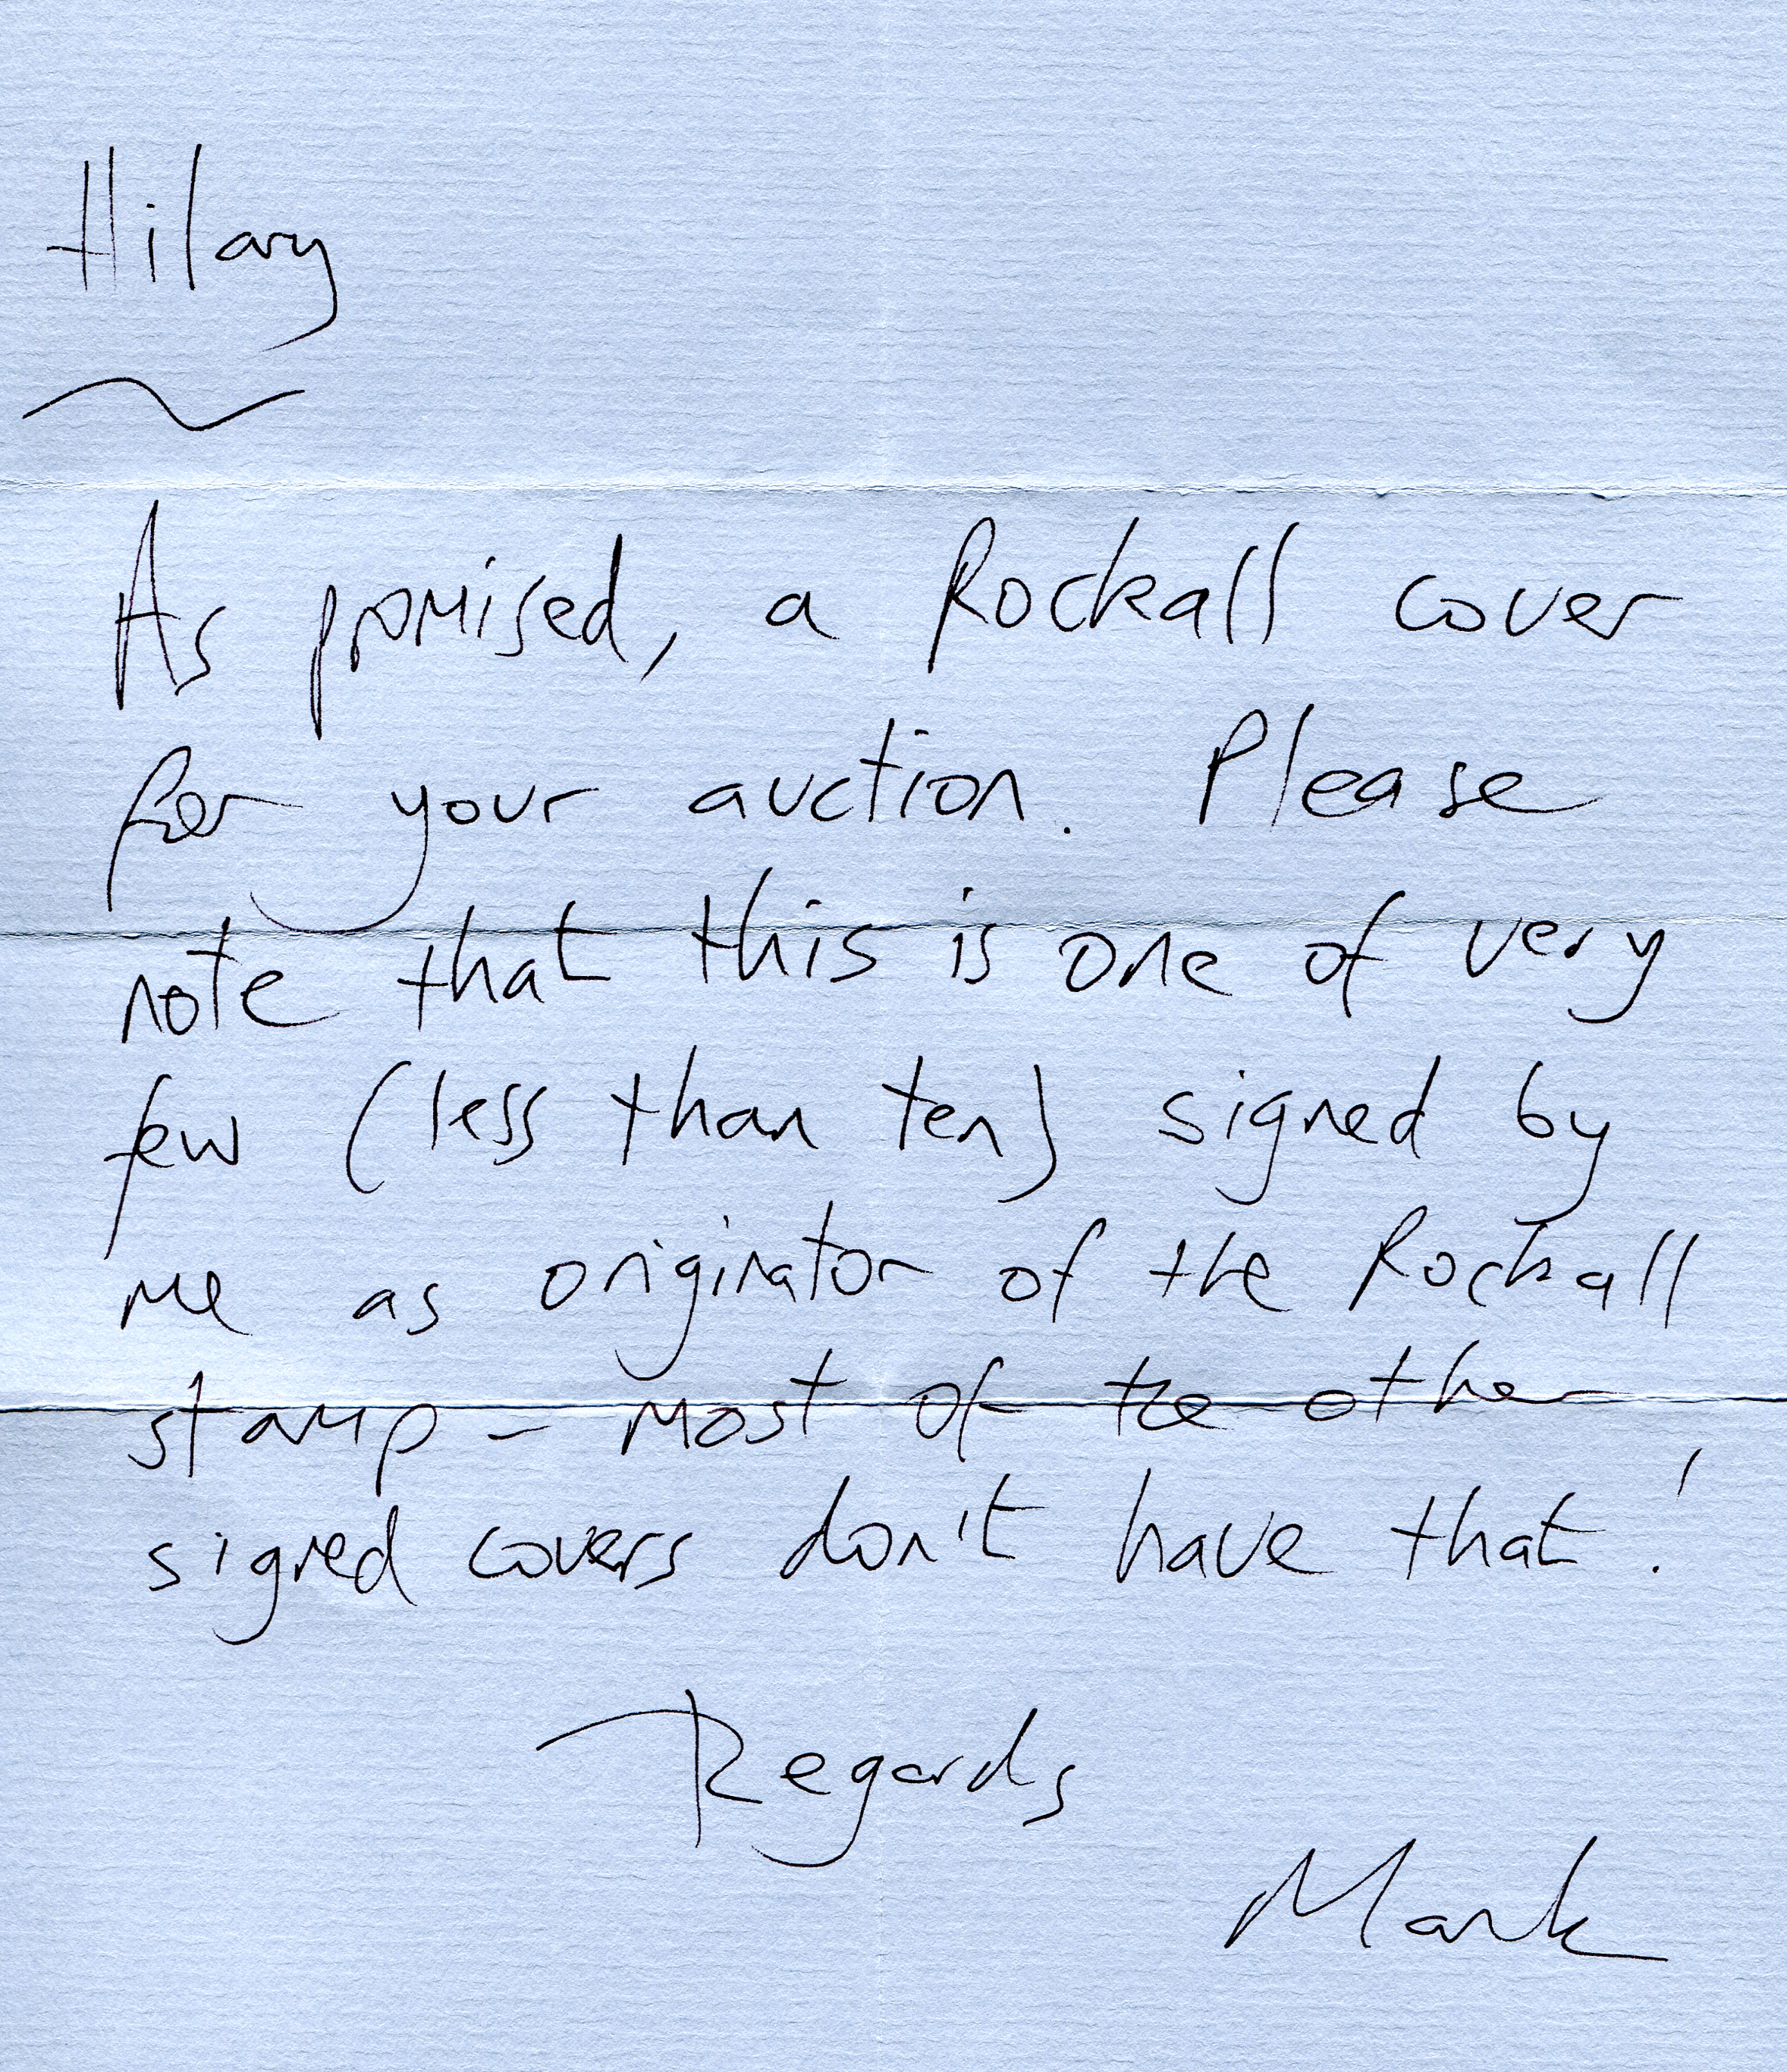 Hilary
As promised, a Rockall cover
for your auction. Please
note that this is one of very
few (less than ten) signed by
me as originator of the Rockall
stamp - most of the other
signed covers don't have that!
Regards
Mark